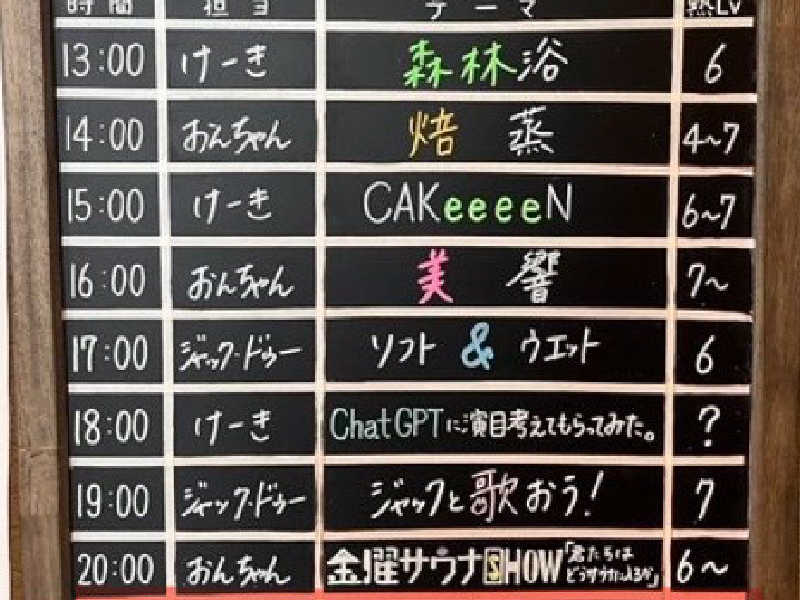 時間 担当 テーマ 熱LV
13:00 けーき 森林浴 6
14:00 おんちゃん 焙 蒸 4~7
15:00 けーき CAKeeeeN 6~7
16:00 おんちゃん 美 響 7~
17:00 ジャック・ドゥー ソフト & ウエット 6
18:00 けーき ChatGPTに演目考えてもらってみた。 ?
19:00 ジャック・ドゥー ジャックと歌おう! 7
20:00 おんちゃん 金曜サウナSHOW「君たちはどうサウナに入るか」 6~